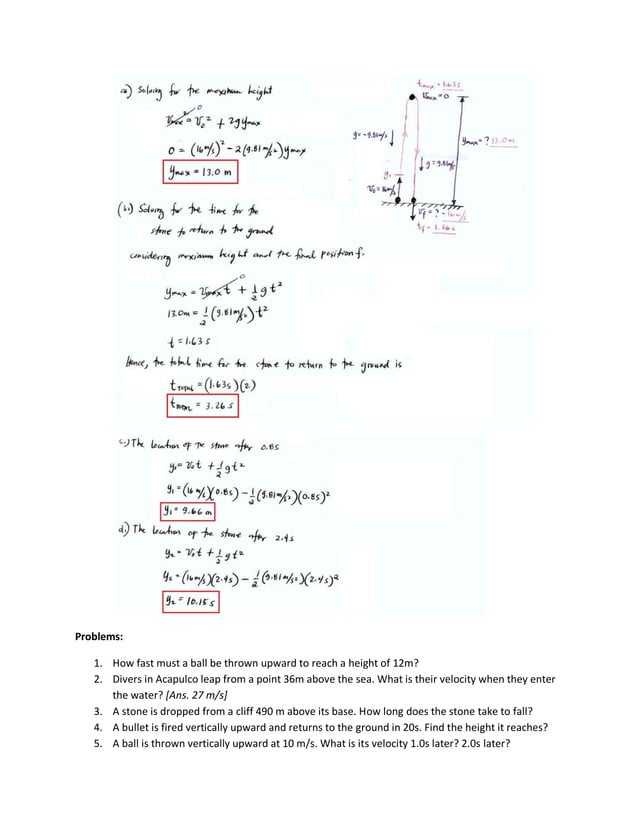 a.) Solving for the maximum height
Vmax² = V₀² + 2gymax
0
0 = (16m/s)² - 2(9.81m/s²)ymax
ymax = 13.0 m
tmax = 1.63s
Vmax = 0
g = -9.81m/s
ymax = ? 13.0m
g = 9.81m/s²
V₀ = 16m/s
Vf = ? -16m/s
tf = 3.26s
(b.) Solving for the time for the
stone to return to the ground
considering maximum height and the final position f.
0
ymax = Vmaxt + 1/2 gt²
13.0m = 1/2 (9.81m/s²)t²
t = 1.63 s
Hence, the total time for the stone to return to the ground is
tTOTAL = (1.63s)(2)
tTOTAL = 3.26 s
c.) The location of the stone after 0.8s
y₁ = V₀t + 1/2 gt²
y₁ = (16 m/s)(0.8s) - 1/2 (9.81m/s²)(0.8s)²
y₁ = 9.66 m
d.) The location of the stone after 2.4s
y₂ = V₀t + 1/2 gt²
y₂ = (16m/s)(2.4s) - 1/2 (9.81m/s²)(2.4s)²
y₂ = 10.15 s
Problems:
1. How fast must a ball be thrown upward to reach a height of 12m?
2. Divers in Acapulco leap from a point 36m above the sea. What is their velocity when they enter
the water? [Ans. 27 m/s]
3. A stone is dropped from a cliff 490 m above its base. How long does the stone take to fall?
4. A bullet is fired vertically upward and returns to the ground in 20s. Find the height it reaches?
5. A ball is thrown vertically upward at 10 m/s. What is its velocity 1.0s later? 2.0s later?